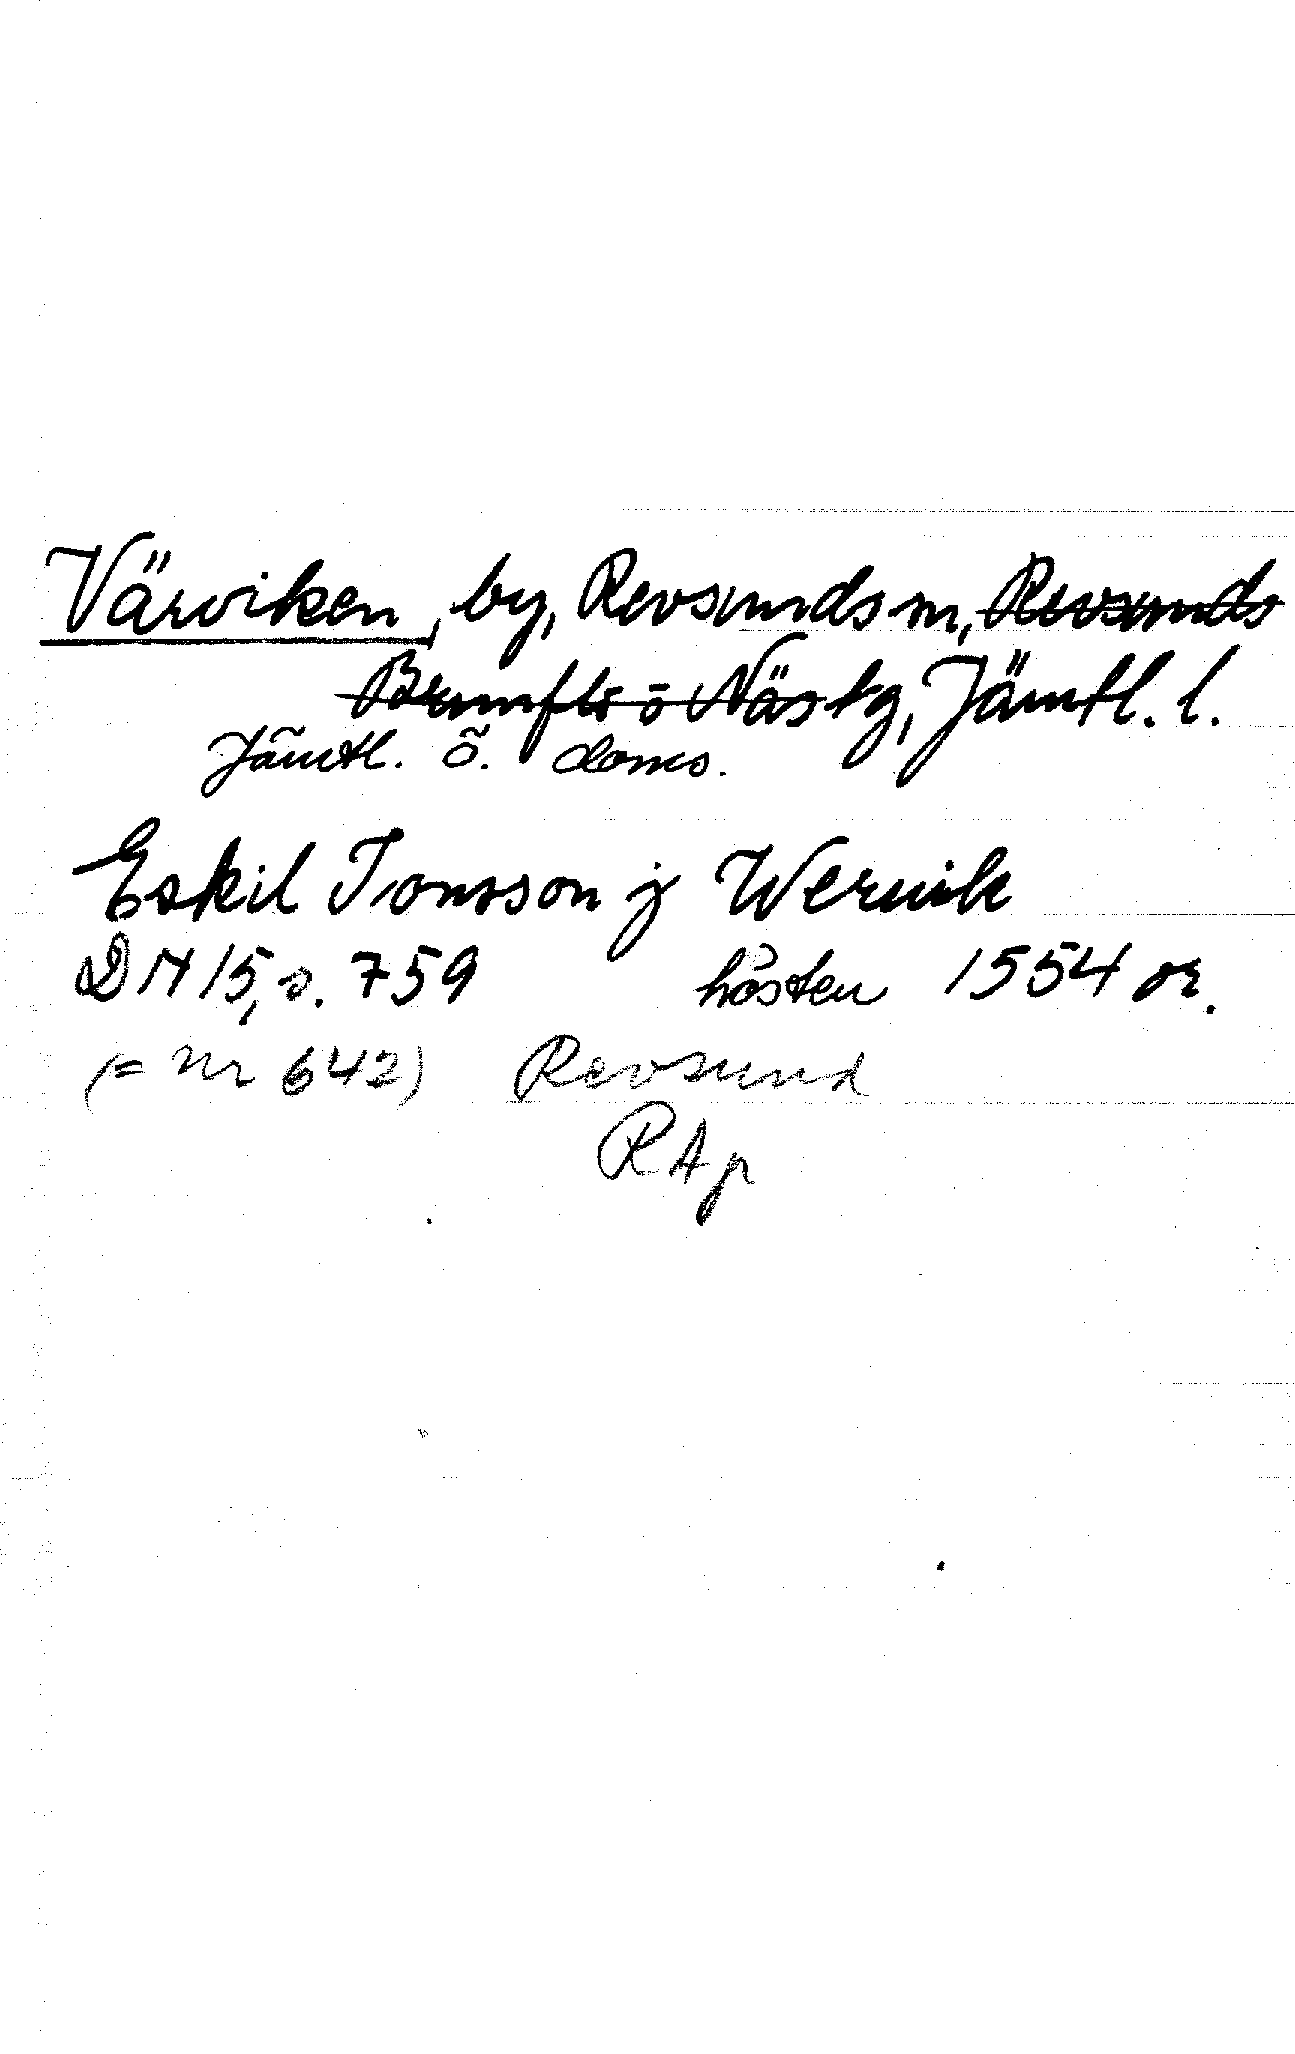 Värviken, by, Revsunds sn, Revsunds
Brunflo o Näs tg, Jämtl. l.
Jämtl. ö. doms.
Eskil Jonsson j Wernik
DN 15, s. 759 hösten 1554 or.
(= nr 642) Revsund
RAp